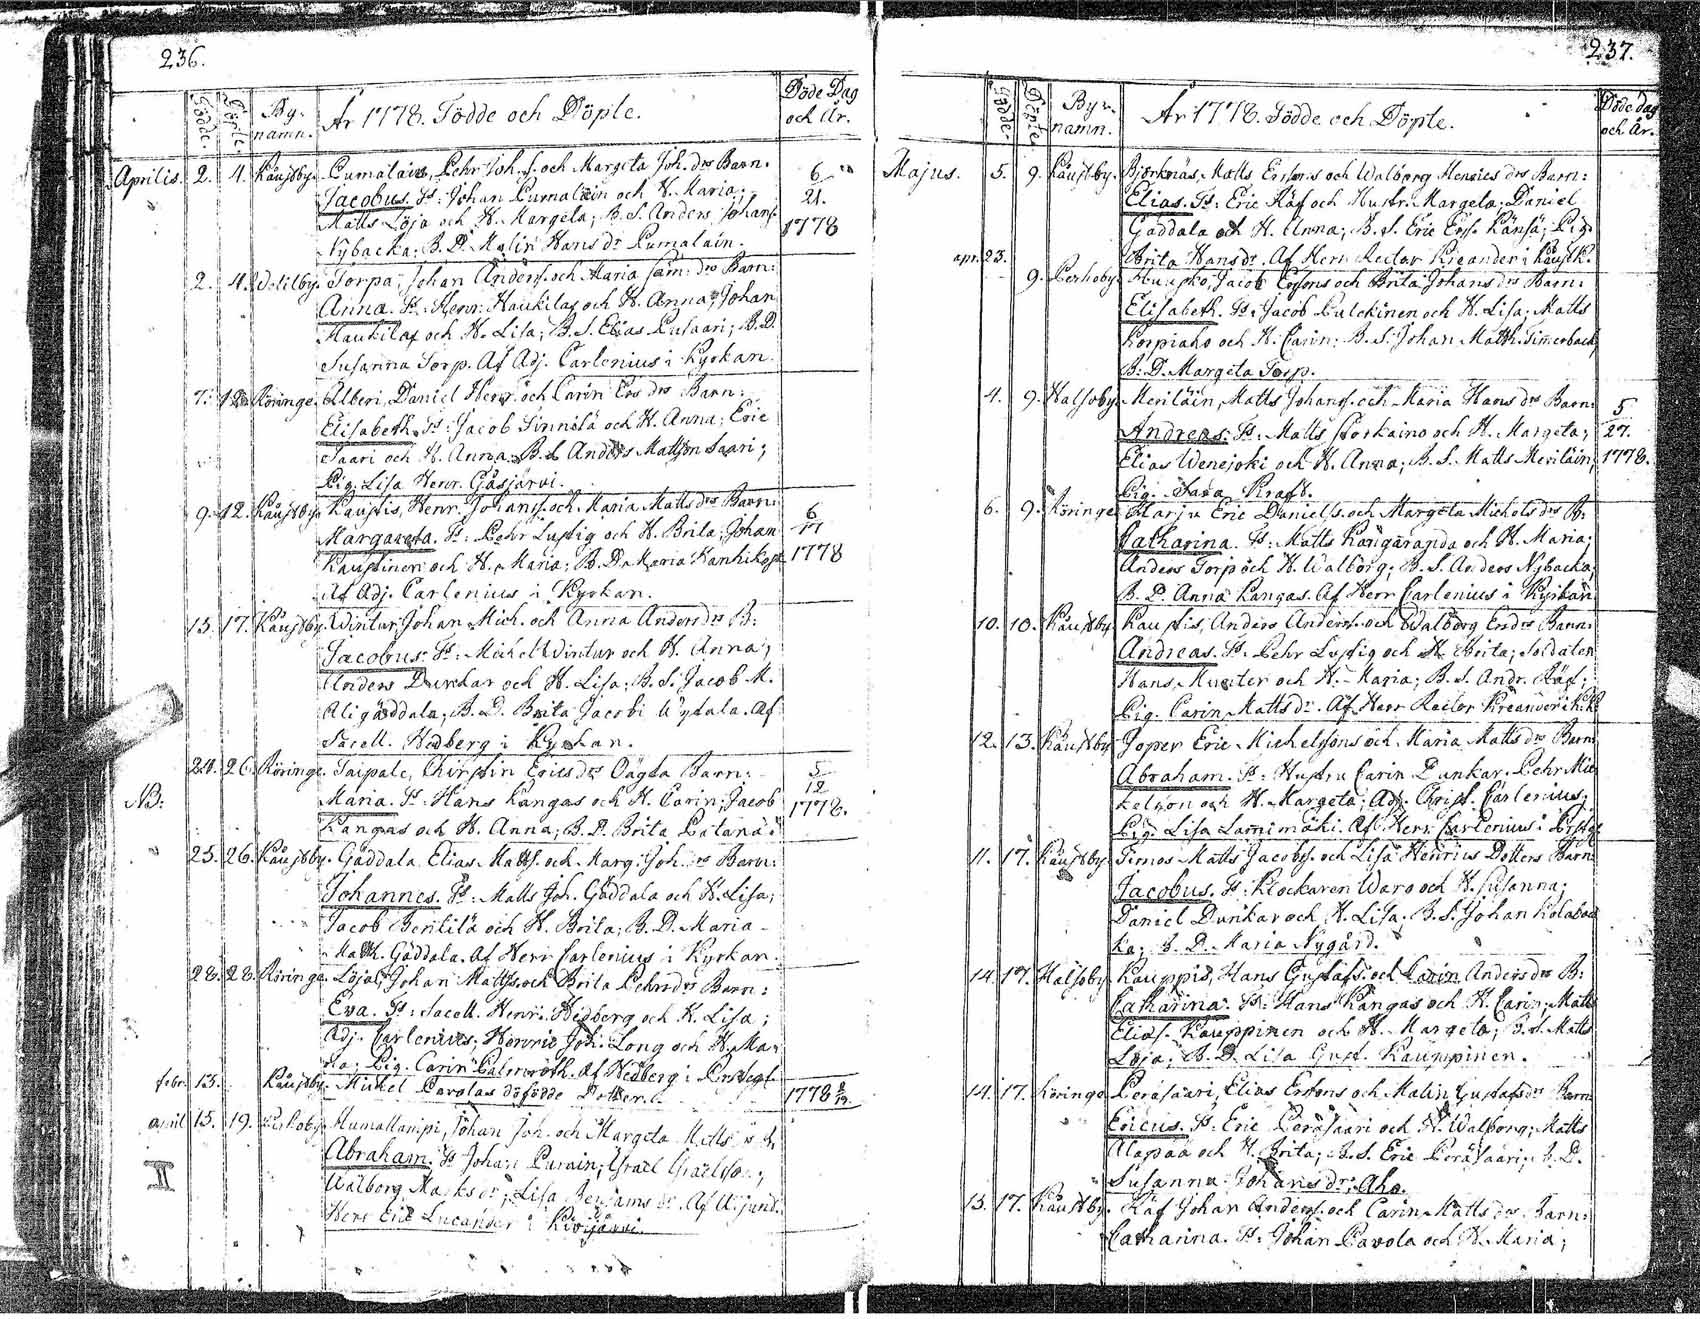 236.
Födde. Döpte. By-namn. År 1778. Födde och Döpte. Döde Dag och År.
Aprilis. 2. 4. Kaustby. Pumalain, Pehr Joh.s. och Margeta Joh. drs Barn. 6
Jacobus. Ts: Johan Pumalain och H. Maria; 21.
Matts Löja och H. Margeta; B. S. Anders Johans. 1778
Nybacka; B. D. Malin Hans dr Pumalain.
2. 4. Wetilby. Torpa, Johan Anderss. och Maria Sam. drs Barn:
Anna. Ts: Henr. Haukilax och H. Anna; Johan
Haukilax och H. Lisa; B. S. Elias Pusaari; B. D.
Susanna Torp. Af Adj. Carlenius i Kyrkan.
7. 12. Köringe. Alberi, Daniel Henr. och Carin Ers drs Barn:
Elisabeth. Ts: Jacob Sinnilä och H. Anna; Eric
Saari och H. Anna; B. S. Anders Mattsson Saari;
Pig. Lisa Henr. Gåsjärvi.
9. 12. Kaustby. Kaustis, Henr. Johanss. och Maria Matts drs Barn: 6
Margareta. Ts: Pehr Lustig och H. Brita; Johan 17
Kaustinen och H. Maria; B. D. Maria Kanhikoski 1778
Af Adj. Carlenius i Kyrkan.
13. 17. Kaustby. Wintur, Johan Mich. och Anna Anders drs B:
Jacobus: Ts: Michel Wintur och H. Anna;
Anders Dunkar och H. Lisa; B. S. Jacob M.
Aligåddala; B. D. Brita Jacobi Wytala. Af
Sacell. Hedberg i Kyrkan.
24. 26. Köringe. Taipale, Chirstin Erics drs Oägta Barn: 5
NB: Maria. Ts: Hans Kangas och H. Carin; Jacob 12
Kangas och H. Anna; B. D. Brita Patana 1778.
25. 26. Kaustby. Gåddala, Elias Matts. och Marg. Joh. drs Barn:
Johannes. Ts: Matts Joh. Gåddala och H. Lisa;
Jacob Bentilä och H. Brita; B. D. Maria
Math. Gåddala. Af Herr Carlenius i Kyrkan.
28. 28. Köringe. Löja, Johan Mattss. och Brita Pehrs drs Barn:
Eva. Ts: Sacell. Henr. Hedberg och H. Lisa;
Adj. Carlenius; Henric Joh. Long och H. Ma-
ria; Pig. Carin Palmroth. Af Hedberg i Prestegl.
febr. 13. Kaustby. Michel Pavolas dödfödde Dotter. 1778
april 15. 19. Perhoby. Humallampi, Johan Joh. och Margeta Matts dr B,
Abraham. Ts Johan Purain; Israel Israelsson;
II Walborg Marks dr; Lisa Benjams dr. Af Adjund.
Herr Eric Lucander i Kivijärvi.
237.
Födde. Döpte. By-namn. År 1778. Födde och Döpte. Döde dag och År.
Majus. 5. 9. Kaustby. Björknäs, Matts Erssons och Walborg Henrics drs Barn:
Elias. Ts: Eric Räf och Hustr. Margeta; Daniel
Gåddala och H. Anna; B. S. Eric Erss. Känsä; Pig.
Brita Hans dr. Af Herr Rector Kreander i Kaust K.
apr. 23. 9. Perhoby. Huupko, Jacob Erssons och Brita Johans drs Barn:
Elisabeth. Ts: Jacob Pulckinen och H. Lisa; Matts
Korpiaho och H. Carin; B. S. Johan Math. Timerbacka,
B. D. Margeta Torp.
4. 9. Halsoby. Meriläin, Matts Johanss. och Maria Hans drs Barn: 5
Andreas. Ts: Matts Storkaino och H. Margeta; 27.
Elias Wenejoki och H. Anna; B. S. Matts Meriläin; 1778.
Pig. Sara Kraft.
6. 9. Köringe. Harju Eric Danielss. och Margeta Michels drs B:
Catharina. Ts: Matts Kangaranda och H. Maria;
Anders Torp och H. Walborg; B. S. Anders Nybacka,
B. D. Anna Kangas. Af Herr Carlenius i Kyrkan
10. 10. Kaustby. Kaustis, Anders Anderss. och Walborg Ers drs Barn:
Andreas. Ts. Pehr Lustig och H. Brita; Soldaten
Hans Munter och H. Maria; B. S. Andr. Räf;
Pig. Carin Matts dr. Af Herr Rector Kreander i K. K.
12. 13. Kaustby. Joper Eric Michelssons och Maria Matts drs Barn:
Abraham. Ts: Hustru Carin Dunkar. Pehr Mic-
helsson och H. Margeta; Adj. Christ. Carlenius;
Pig. Lisa Lammimäki. Af Herr Carlenius i Prstgl.
11. 17. Kaustby. Timos Matts Jacobss. och Lisa Henrics Dotters Barn
Jacobus. Ts: Klockaren Waro och H. Susanna;
Daniel Dunkar och H. Lisa; B. S. Johan Kolabac
ka; B. D. Maria Nygård.
14. 17. Halsoby. Kauppis, Hans Gustafs. och Carin Anders drs B:
Catharina. Ts: Hans Kangas och H. Carin; Matts
Eliass. Kauppinen och H. Margeta; B. S. Matts
Löja; B. D. Lisa Gust. Kauppinen.
14. 17. Köringe. Peräsaari, Elias Erssons och Malin Gustafs dr Barn
Ericus. Ts: Eric Peräsaari och H. Walborg; Matts
Alapää och H. Brita; B. S. Eric Peräsaari; B. D.
Susanna Johans dr Aho.
13. 17. Kaustby. Räf Johan Anderss. och Carin Matts drs Barn:
Catharina. Ts: Johan Pavola och H. Maria;